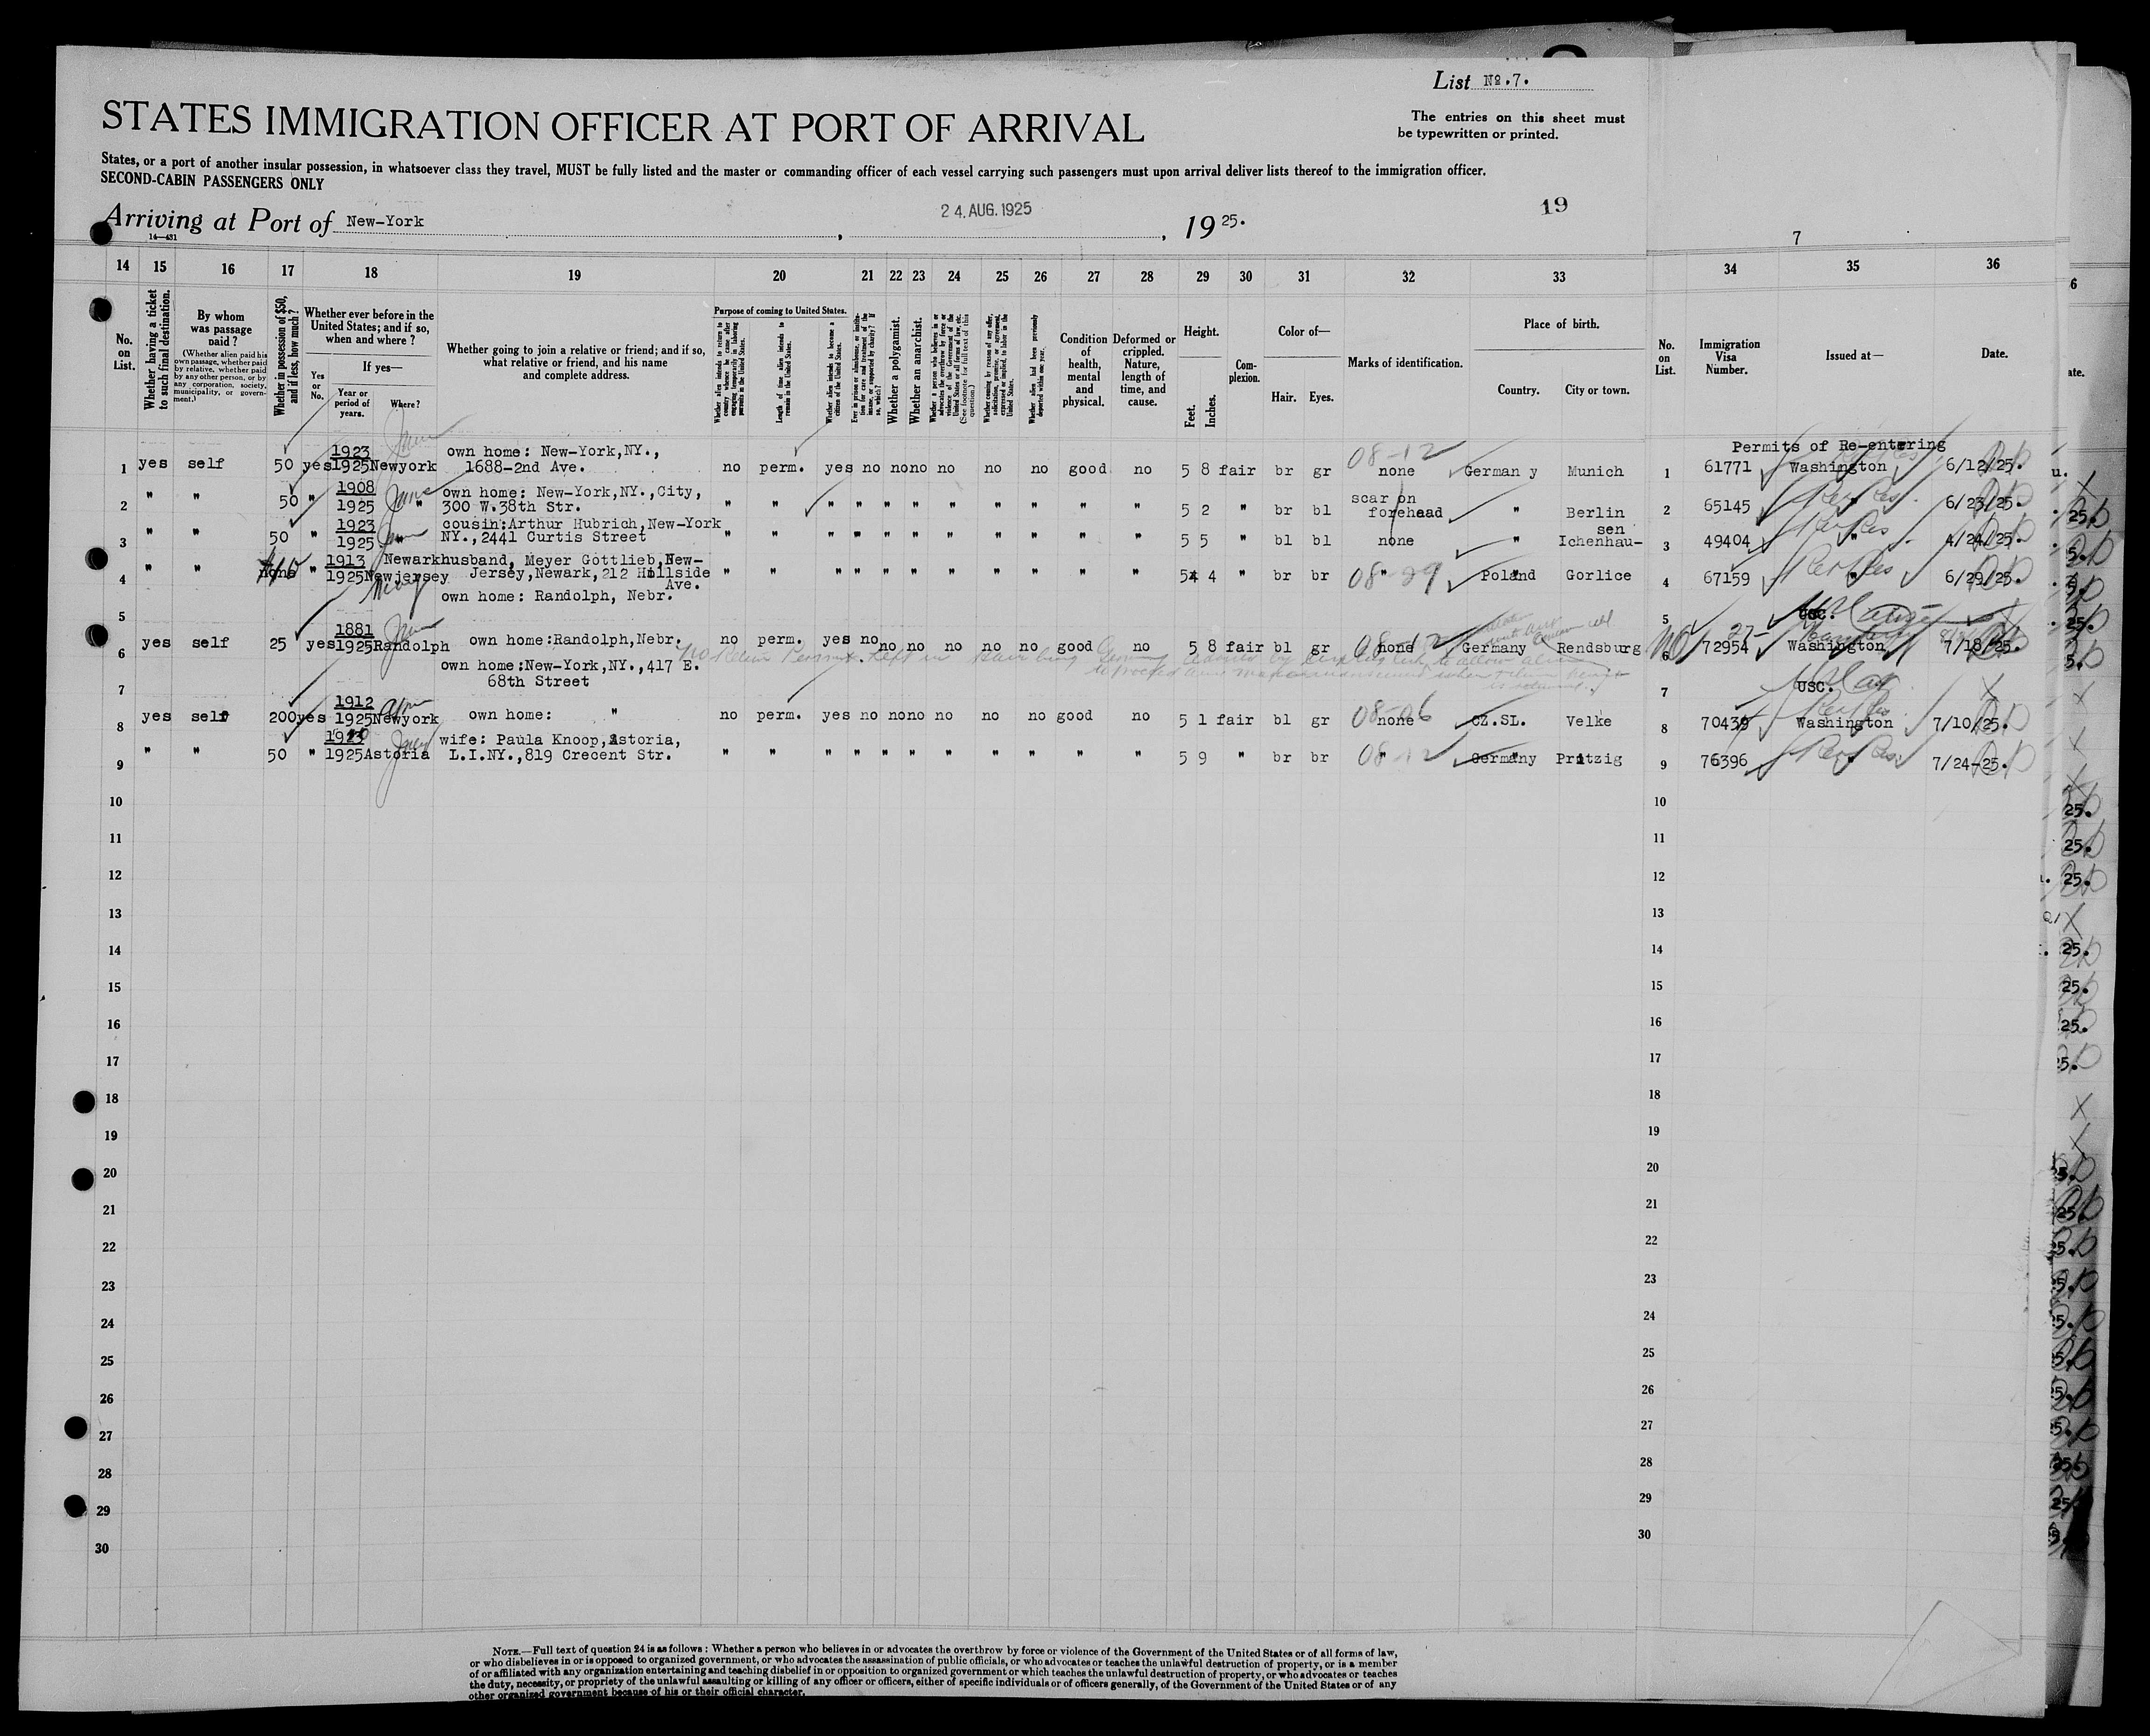 List № .7.
STATES IMMIGRATION OFFICER AT PORT OF ARRIVAL
The entries on this sheet must
be typewritten or printed.
States, or a port of another insular possession, in whatsoever class they travel, MUST be fully listed and the master or commanding officer of each vessel carrying such passengers must upon arrival deliver lists thereof to the immigration officer.
SECOND-CABIN PASSENGERS ONLY
Arriving at Port of New-York, 24. AUG. 1925, 1925.
19
14—431
7
14 15 16 17 18 19 20 21 22 23 24 25 26 27 28 29 30 31 32 33 34 35 36
No. on List.
Whether having a ticket to such final destination.
By whom was passage paid?
(Whether alien paid his own passage, whether paid by relative, whether paid by any other person, or by any corporation, society, municipality, or government.)
Whether in possession of $50, and if less, how much?
Whether ever before in the United States; and if so, when and where?
If yes—
Yes or No.
Year or period of years.
Where?
Whether going to join a relative or friend; and if so, what relative or friend, and his name and complete address.
Purpose of coming to United States.
Whether alien intends to return to country whence he came after engaging temporarily in laboring pursuits in the United States.
Length of time alien intends to remain in the United States.
Whether alien intends to become a citizen of the United States.
Ever in prison or almshouse, or institution for care and treatment of the insane, or supported by charity? If so, which?
Whether a polygamist.
Whether an anarchist.
Whether a person who believes in or advocates the overthrow by force or violence of the Government of the United States or all forms of law, etc. (See footnote for full text of this question.)
Whether coming by reason of any offer, solicitation, promise, or agreement, expressed or implied, to labor in the United States.
Whether alien had been previously deported within one year.
Condition of health, mental and physical.
Deformed or crippled. Nature, length of time, and cause.
Height.
Feet. Inches.
Complexion.
Color of—
Hair. Eyes.
Marks of identification.
Place of birth.
Country. City or town.
No. on List.
Immigration Visa Number.
Issued at—
Date.
Permits of Re-entering
1 yes self 50 yes 1923 1925 Newyork own home: New-York,NY., 1688-2nd Ave. no perm. yes no no no no no no good no 5 8 fair br gr 08-12 none Germany Munich 1 61771 Washington 6/12/25.
2 " " 50 " 1908 1925 " own home: New-York,NY.,City, 300 W.38th Str. " " " " " " " " " " " 5 2 " br bl scar on forehead " Berlin 2 65145 " 6/23/25.
3 " " 50 " 1923 1925 " cousin:Arthur Hubrich,New-York NY.,2441 Curtis Street " " " " " " " " " " " 5 5 " bl bl none " Ichenhau-sen 3 49404 " 4/24/25.
4 " " none " 1913 1925 Newark Newjersey husband, Meyer Gottlieb,New-Jersey,Newark,212 Hillside Ave. " " " " " " " " " " " 5 4 " br br " 08-29 Poland Gorlice 4 67159 " 6/29/25.
5 own home: Randolph, Nebr. 5 USC.
6 yes self 25 yes 1881 1925 Randolph own home:Randolph,Nebr. no perm. yes no no no no no no good no 5 8 fair bl gr none Germany Rendsburg 6 72954 Washington 7/18/25.
7 own home:New-York,NY.,417 E. 68th Street 7 USC.
8 yes self 200 yes 1912 1925 Newyork own home: " no perm. yes no no no no no no good no 5 1 fair bl gr 08-06 none CZ.SL. Velke 8 70439 Washington 7/10/25.
9 " " 50 " 1923 1925 Astoria wife: Paula Knoop,Astoria, L.I.NY.,819 Crecent Str. " " " " " " " " " " " 5 9 " br br 08-12 " Germany Pritzig 9 76396 " 7/24-25.
10 10
11 11
12 12
13 13
14 14
15 15
16 16
17 17
18 18
19 19
20 20
21 21
22 22
23 23
24 24
25 25
26 26
27 27
28 28
29 29
30 30
NOTE.—Full text of question 24 is as follows: Whether a person who believes in or advocates the overthrow by force or violence of the Government of the United States or of all forms of law,
or who disbelieves in or is opposed to organized government, or who advocates the assassination of public officials, or who advocates or teaches the unlawful destruction of property, or is a member
of or affiliated with any organization entertaining and teaching disbelief in or opposition to organized government or which teaches the unlawful destruction of property, or who advocates or teaches
the duty, necessity, or propriety of the unlawful assaulting or killing of any officer or officers, either of specific individuals or of officers generally, of the Government of the United States or of any
other organized government because of his or their official character.